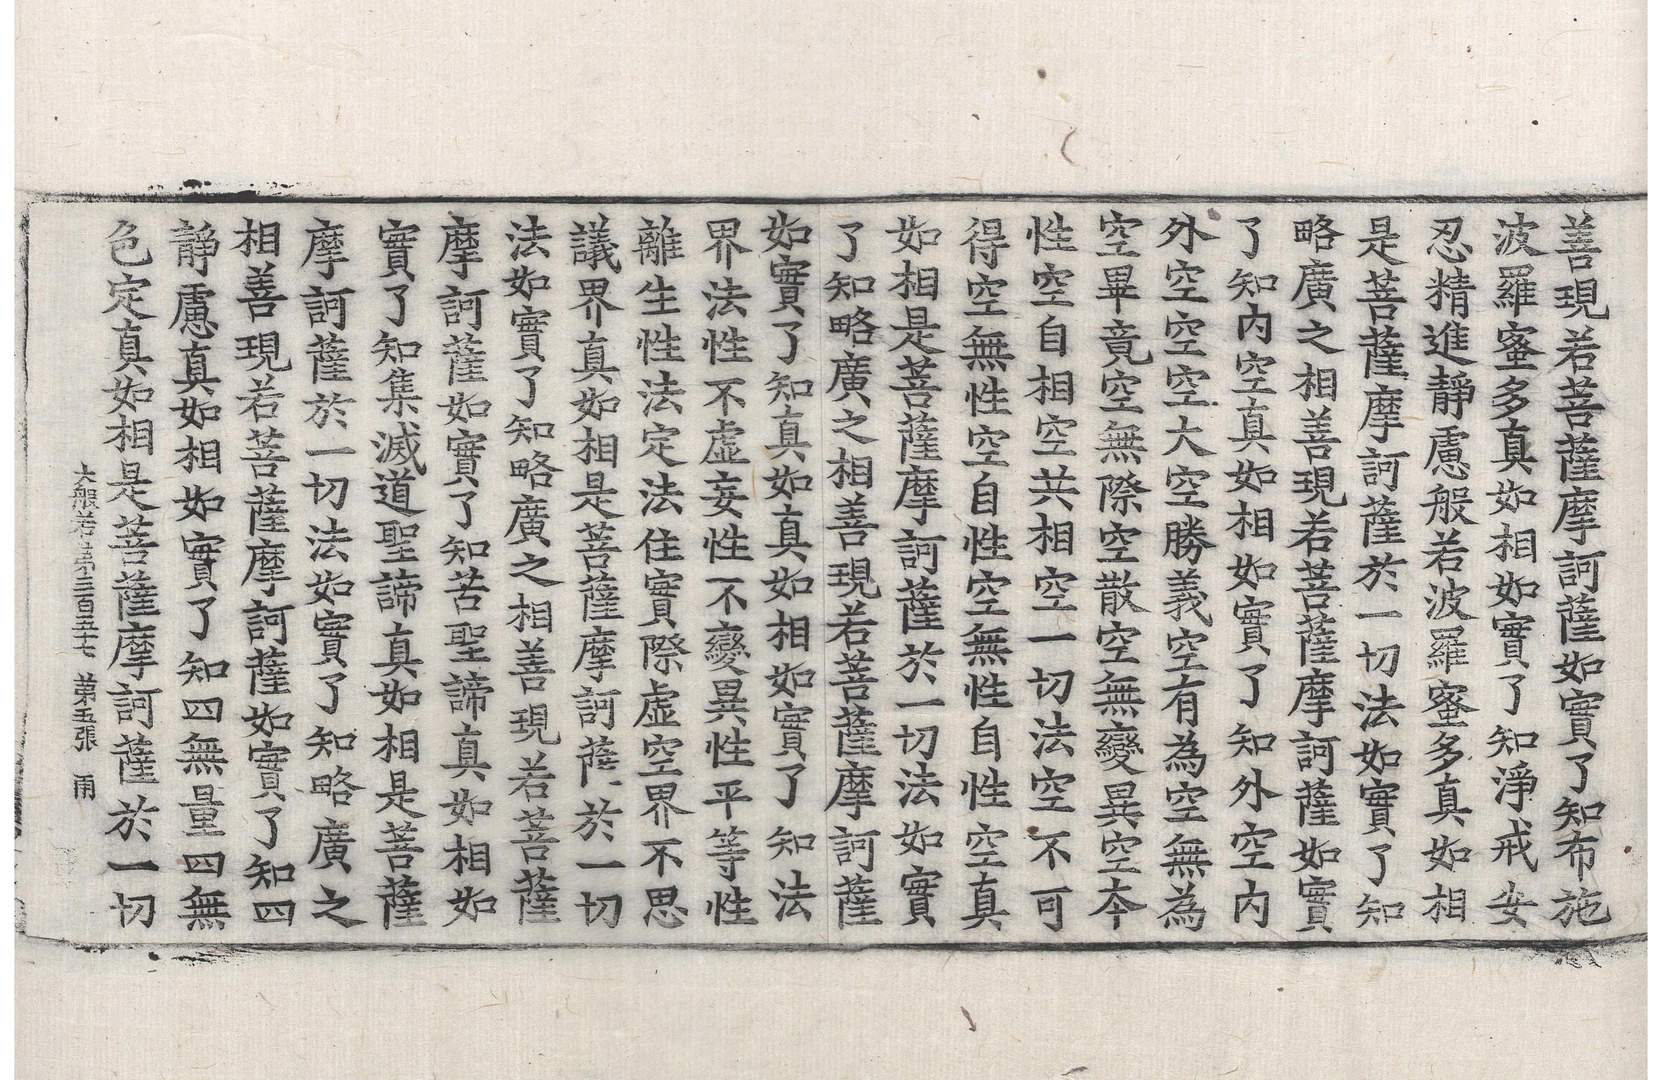 善現若菩薩摩訶薩如實了知布施
波羅蜜多真如相如實了知淨戒安
忍精進靜慮般若波羅蜜多真如相
是菩薩摩訶薩於一切法如實了知
略廣之相善現若菩薩摩訶薩如實
了知內空真如相如實了知外空內
外空空空大空勝義空有為空無為
空畢竟空無際空散空無變異空本
性空自相空共相空一切法空不可
得空無性空自性空無性自性空真
如相是菩薩摩訶薩於一切法如實
了知略廣之相善現若菩薩摩訶薩
如實了知真如真如相如實了知法
界法性不虛妄性不變異性平等性
離生性法定法住實際虛空界不思
議界真如相是菩薩摩訶薩於一切
法如實了知略廣之相善現若菩薩
摩訶薩如實了知苦聖諦真如相如
實了知集滅道聖諦真如相是菩薩
摩訶薩於一切法如實了知略廣之
相善現若菩薩摩訶薩如實了知四
靜慮真如相如實了知四無量四無
色定真如相是菩薩摩訶薩於一切
大般若第三百五十七 第五張